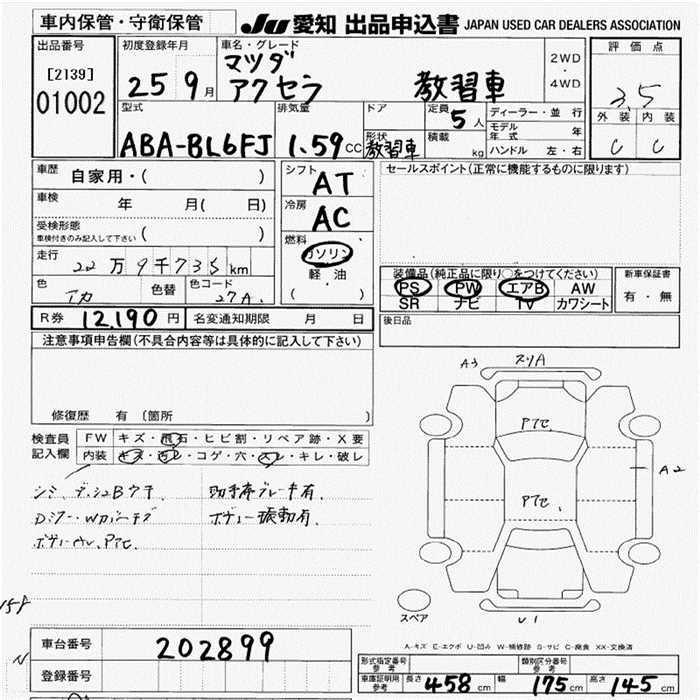 車内保管・守衛保管
JU 愛知 出品申込書 JAPAN USED CAR DEALERS ASSOCIATION
出品番号
[2139]
01002
初度登録年月
25 9月
車名・グレード
マツダ
アクセラ 教習車
2WD
・
4WD
評価点
3.5
外装 内装
C C
型式
ABA-BL6FJ
排気量
1.59cc
ドア
形状
教習車
定員
5人
積載
kg
ディーラー・並行
モデル年式 年
ハンドル 左・右
車歴
自家用・( )
車検
年 月( 日)
受検形態
車検付きのみ記入して下さい ( )
走行
22万9千735km
色
アカ
色替
色コード
27A
シフト
AT
冷房
AC
燃料
ガソリン
軽油
( )
セールスポイント(正常に機能するものに限ります)
装備品(純正品に限り○をつけてください)
PS PW エアB AW
SR ナビ TV カワシート
新車保証書
有・無
R券 12,190円
名変通知期限 月 日
後日品
注意事項申告欄(不具合内容等は具体的に記入して下さい)
修復歴 有 〔箇所 〕
検査員
記入欄
FW キズ・飛石・ヒビ割・リペア跡・X要
内装 キズ・汚レ・コゲ・穴・スレ・キレ・破レ
助手席ブレーキ有
ボディー振動有.
A3
スリA
Pアセ
A2
Pアセ.
スペア
U1
A-キズ E-エクボ U-凹み W-補修跡 S-サビ C-腐食 XX-交換済
158
N
車台番号
202899
登録番号
形式指定番号
参考
類別区分番号
参考
車庫証明用
参考
長さ 458cm 幅 175cm 高さ 145cm